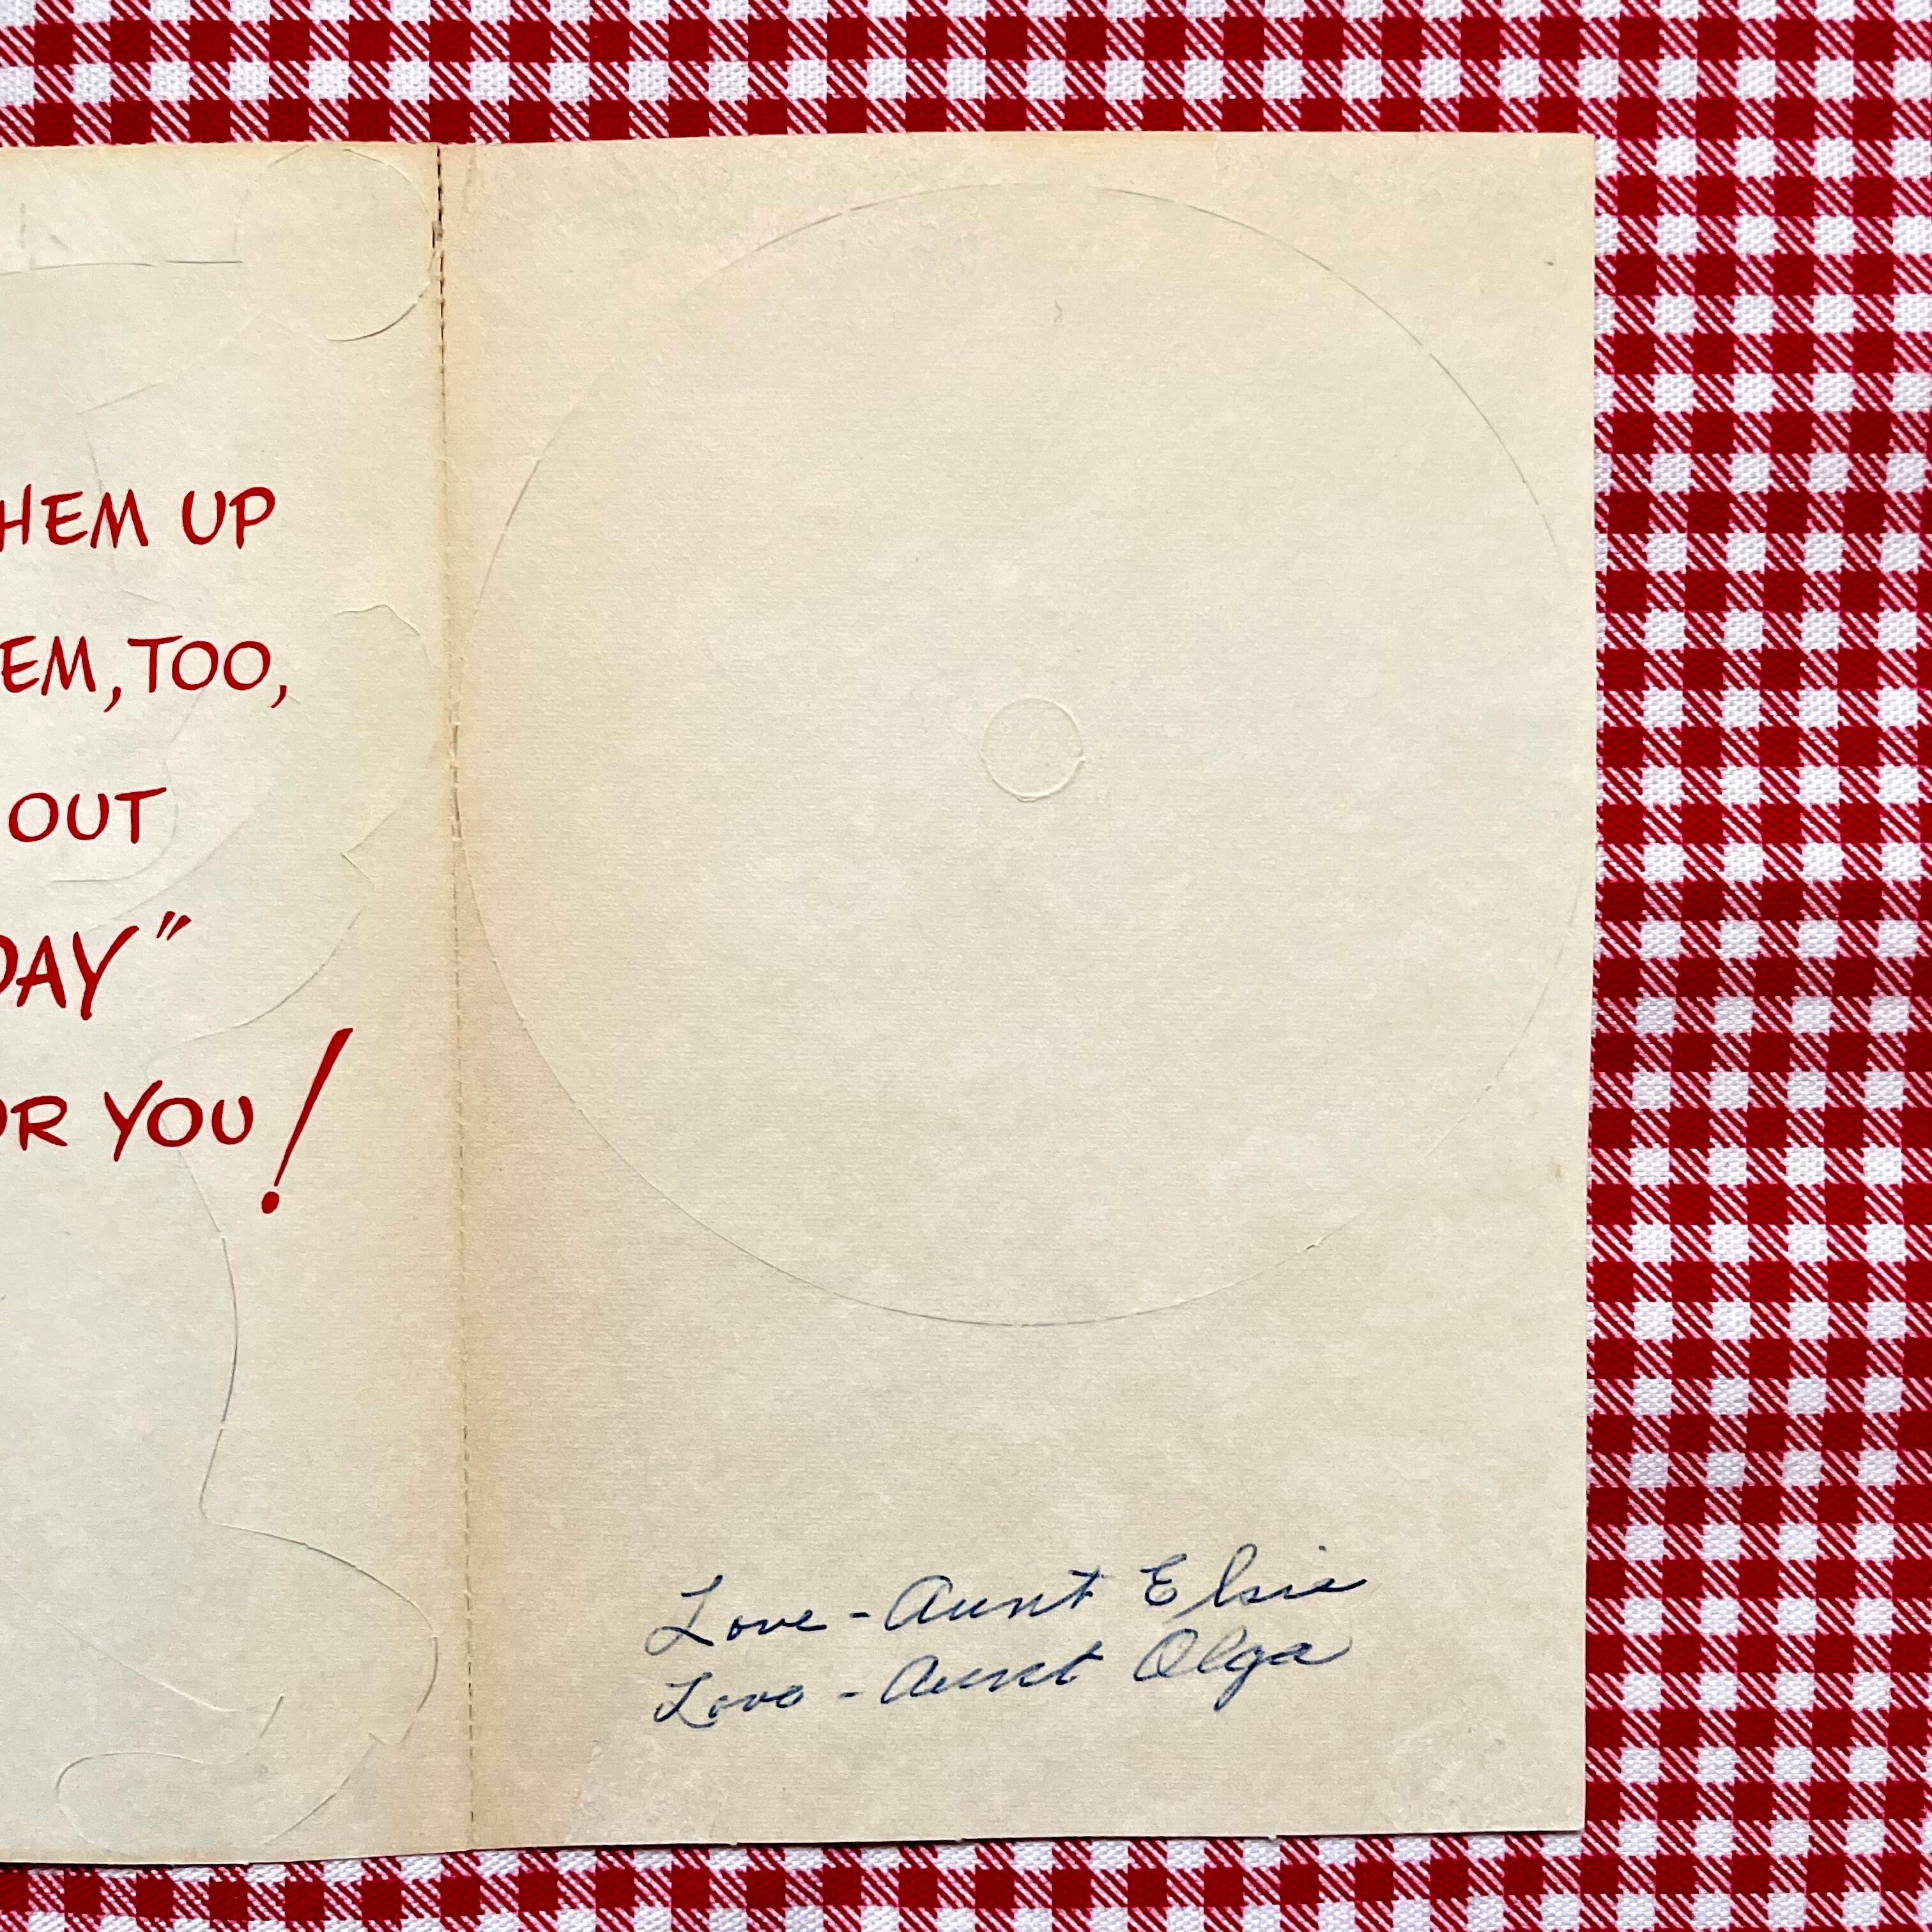 HEM UP
EM, TOO,
OUT
DAY"
OR YOU!
Love - Aunt Elsie
Love - Aunt Olga